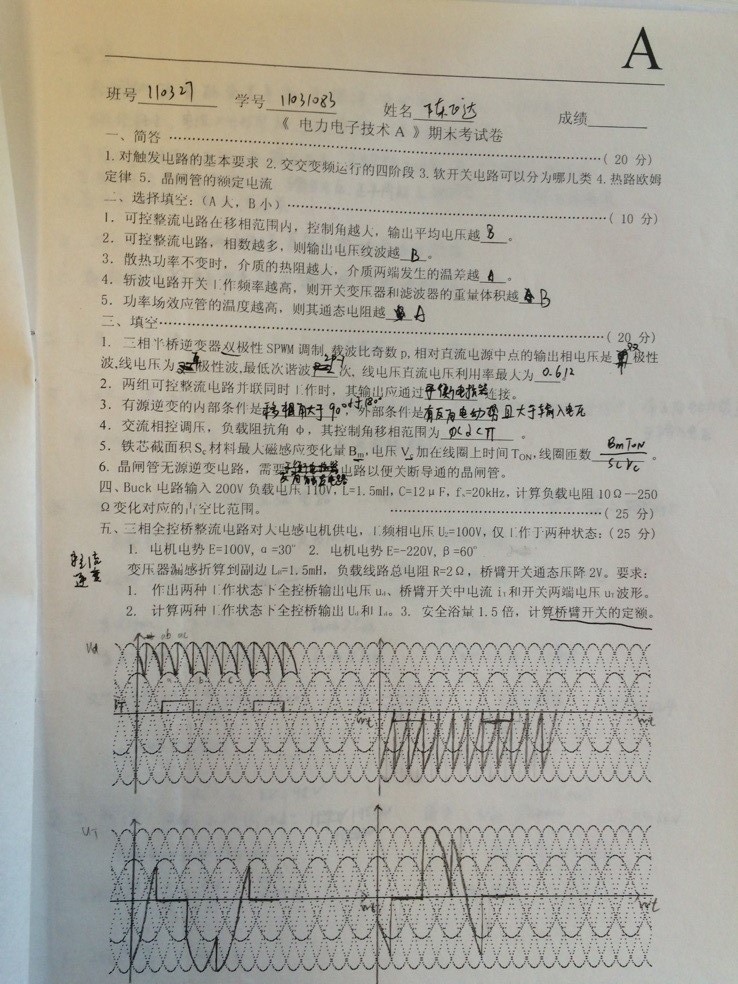 A
班号 110327 学号 11031083 姓名 成绩
《 电力电子技术 A 》期末考试卷
一、简答 ……………………………………………………( 20 分)
1. 对触发电路的基本要求 2. 交交变频运行的四阶段 3. 软开关电路可以分为哪几类 4. 热路欧姆
定律 5. 晶闸管的额定电流
二、选择填空:(A 大, B 小) ……………………………………( 10 分)
1. 可控整流电路在移相范围内, 控制角越大, 输出平均电压越 B 。
2. 可控整流电路, 相数越多, 则输出电压纹波越 B 。
3. 散热功率不变时, 介质的热阻越大, 介质两端发生的温差越 A 。
4. 斩波电路开关工作频率越高, 则开关变压器和滤波器的重量体积越 B
5. 功率场效应管的温度越高, 则其通态电阻越 A
三、填空 ……………………………………………………( 20 分)
1. 三相半桥逆变器双极性 SPWM 调制, 载波比奇数 p, 相对直流电源中点的输出相电压是 双 极性
波, 线电压为 极性波, 最低次谐波 次, 线电压直流电压利用率最大为 0.612
2. 两组可控整流电路并联同时工作时, 其输出应通过 平衡电抗器 连接。
3. 有源逆变的内部条件是 移相角大于90° 外部条件是 有反向电动势且大于输入电压
4. 交流相控调压, 负载阻抗角 φ, 其控制角移相范围为 φ<α<π 。
5. 铁芯截面积 Sc 材料最大磁感应变化量 Bm, 电压 Vc 加在线圈上时间 TON, 线圈匝数 BmTON/ScVc 。
6. 晶闸管无源逆变电路, 需要 电路以便关断导通的晶闸管。
四、Buck 电路输入 200V 负载电压 110V, L=1.5mH, C=12μF, fs=20kHz, 计算负载电阻 10Ω--250
Ω变化对应的占空比范围。 ……………………………………( 25 分)
五、三相全控桥整流电路对大电感电机供电, 工频相电压 U2=100V, 仅工作于两种状态:( 25 分)
1. 电机电势 E=100V, α=30° 2. 电机电势 E=-220V, β=60°
整流
逆变
变压器漏感折算到副边 LB=1.5mH, 负载线路总电阻 R=2Ω, 桥臂开关通态压降 2V。要求:
1. 作出两种工作状态下全控桥输出电压 ud、桥臂开关中电流 iT 和开关两端电压 uT 波形。
2. 计算两种工作状态下全控桥输出 Ud 和 Id。 3. 安全浴量 1.5 倍, 计算桥臂开关的定额。
Ud
ab ac
iT
wt wt
UT
wt wt